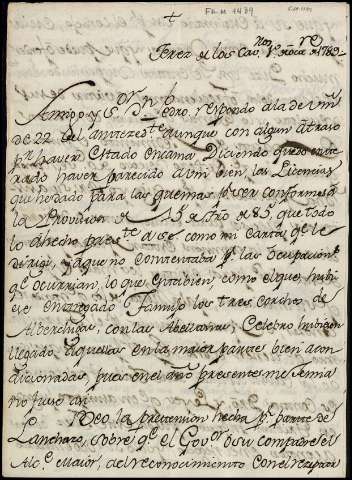 +
FA.M 1439
Jerez de los Cav.ros 1789
Amigo y S.or D.n Pedro. respondo a la de vm
de 22 del anteced.te aunque con algun atraso
p.r haver estado en cama. Diciendo quedo ente
rado haver parecido a vm bien las Licencias
qu he dado para las quemas, p.r ser conformes a
la Provision de 15 de de 85, que todo
lo ha hecho pres.te como mi carta q.e le
dirigi, ya que no contextaba p.r las ocupacion.s
q.e ocurrian, lo que tambien como el que hubi
ese entregado Familio los tres corchos de
Alberchigas, con las Abellanas; Celebro hubiesen
llegado aquellas en la maior parte bien acon
dicionadas, pues en el dia presentes me
no fuese asi.
Veo la pretension hecha p.r parte de
Lanchazo, sobre q.e el Gov.or o su compadre el
Alc.e Maior, del reconocimiento